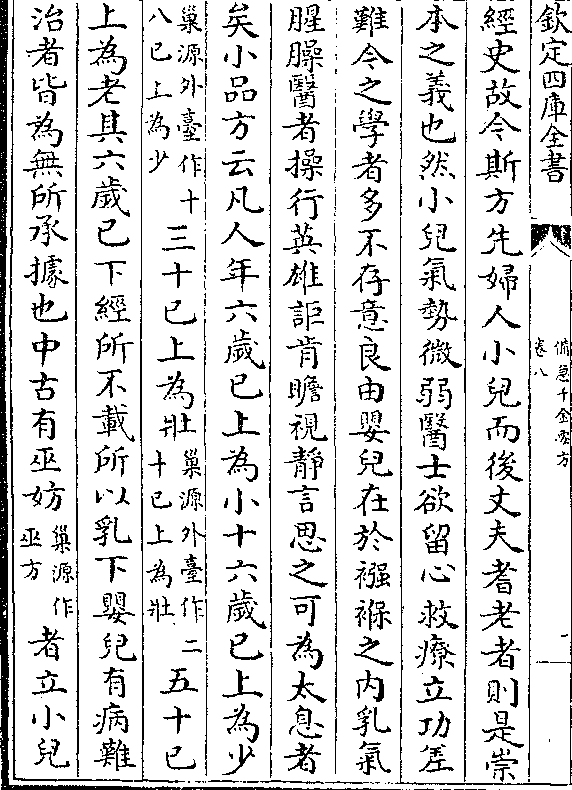 欽定四庫全書
備急千金要方
卷八
二
經史故今斯方先婦人小兒而後丈夫耆老者則是崇
本之義也然小兒氣勢微弱醫士欲留心救療立功差
難今之學者多不存意良由嬰兒在於襁褓之內乳氣
腥臊醫者操行英雄詎肯瞻視靜言思之可為太息者
矣小品方云凡人年六歲已上為小十六歲已上為少
巢源外臺作十八已上為少三十已上為壯巢源外臺作二十已上為壯五十已
上為老其六歲已下經所不載所以乳下嬰兒有病難
治者皆為無所承據也中古有巫妨巢源作巫方者立小兒